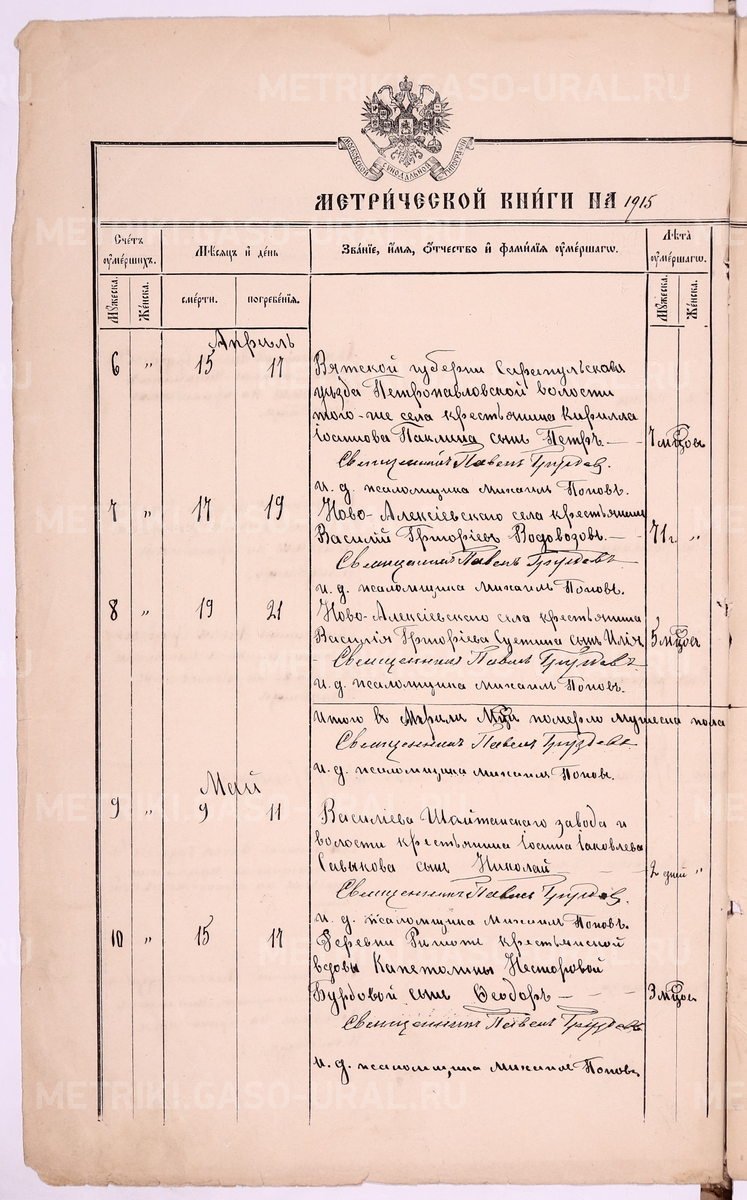 METRIKI.GASO-URAL.RU
МОСКОВСКОЙ СѴНОДАЛЬНОЙ ТИПОГРАФІИ
МЕТРИ́ЧЕСКОЙ КНИ́ГИ НА 1915
Сче́тъ ᲂу҆ме́ршихъ.
Мѣ́сяцъ и҆ де́нь
Зва́нїе, и҆́мя, ѻ҆́тчество и҆ фами́лїя ᲂу҆ме́ршагѡ.
Лѣ́та ᲂу҆ме́ршагѡ.
Мꙋ́жеска.
Же́нска.
сме́рти.
погребе́нїя.
Мꙋ́жеска.
Же́нска.
Апрѣль
6 " 15 17 Вятской губерніи Сарапульскова
уѣзда Петропавловской волости
того-же села крестьянина Кирилла
Іоаннова Паклина сынъ Петръ — 7 мцовъ
Священникъ Павелъ Груздев.
и. д. псаломщика Михаилъ Поповъ.
7 " 17 19 Ново-Алексіевскаго села крестьянинъ
Василій Григоріев Водовозовъ. — 71 г. "
Священникъ Павелъ Груздевъ
и. д. псаломщика Михаилъ Поповъ.
8 " 19 21 Ново-Алексіевскаго села крестьянина
Василія Григоріева сынъ Илія 5 мцовъ
Священникъ Павелъ Груздевъ
и. д. псаломщика Михаилъ Поповъ.
Итого в Апрѣли Мцѣ померло мужеска пола
Священникъ Павелъ Груздевъ
и. д. псаломщика Михаилъ Попов.
Май
9 " 9 11 Василіева Шайтанскаго завода и
волости крестьянина Іоанна Іаковлева
сынъ Николай 2 дней "
Священникъ Павелъ Груздев.
и. д. псаломщика Михаилъ Поповъ.
10 " 15 17 Деревни крестьянской
вдовы Капетолины Несторовой
Бурдовой сынъ Ѳеодоръ — 3 мцов.
Священникъ Павелъ Груздевъ
и. д. псаломщика Михаилъ Поповъ